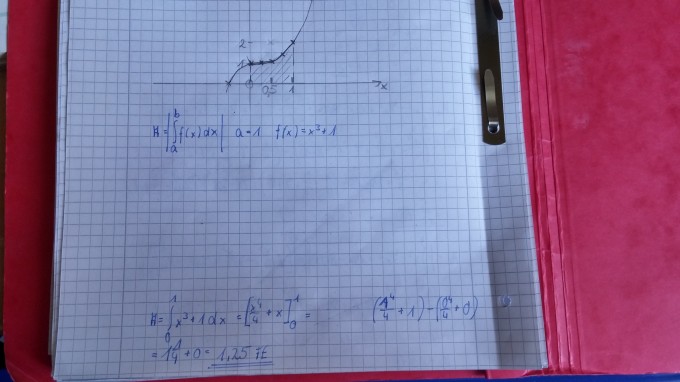 2
1
0 0,5 1 x
A = |∫ₐᵇ f(x) dx| a = 1 f(x) = x³ + 1
A = ∫₀¹ x³ + 1 dx = [x⁴/4 + x]₀¹ = (1⁴/4 + 1) - (0⁴/4 + 0)
= 1 1/4 + 0 = 1,25 FE